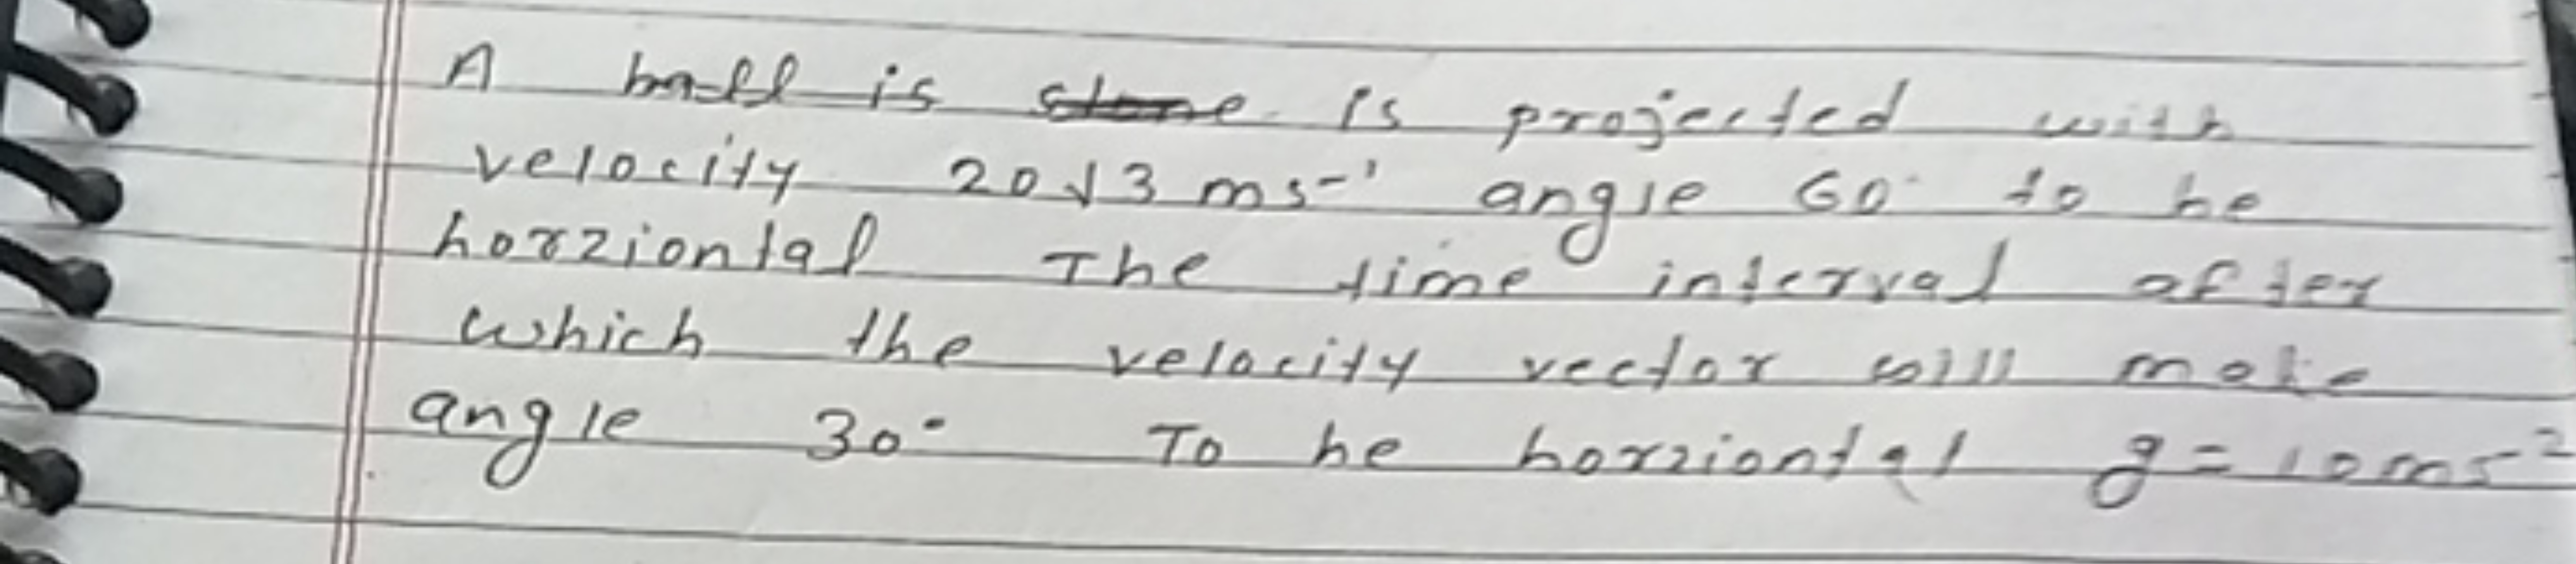 A ball is stone is projected with
velocity 20√3 ms-1 angle 60 to he
horziontal The time interval after
which the velocity vector will make
angle 30° To he horziontal g = 10 ms-2